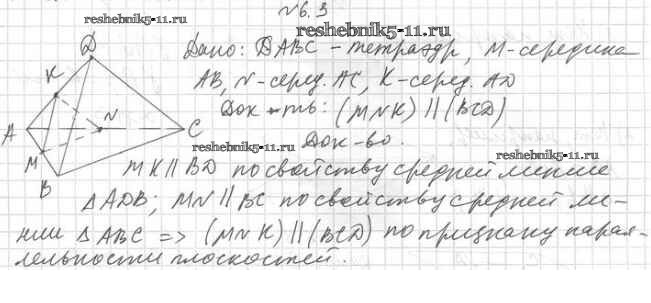 №6.3
reshebnik5-11.ru
reshebnik5-11.ru
Дано: DABC - тетраэдр, M-середина
AB, N-серед. AC, K-серед. AD
Док-ть: (MNK) || (BCD)
reshebnik5-11.ru
Док-во.
reshebnik5-11.ru
MK || BD по свойству средней линие
△ADB; MN || BC по свойству средней ли-
нии △ABC => (MNK) || (BCD) по признаку парал-
лельности плоскостей.
D
K
A
N
C
M
B